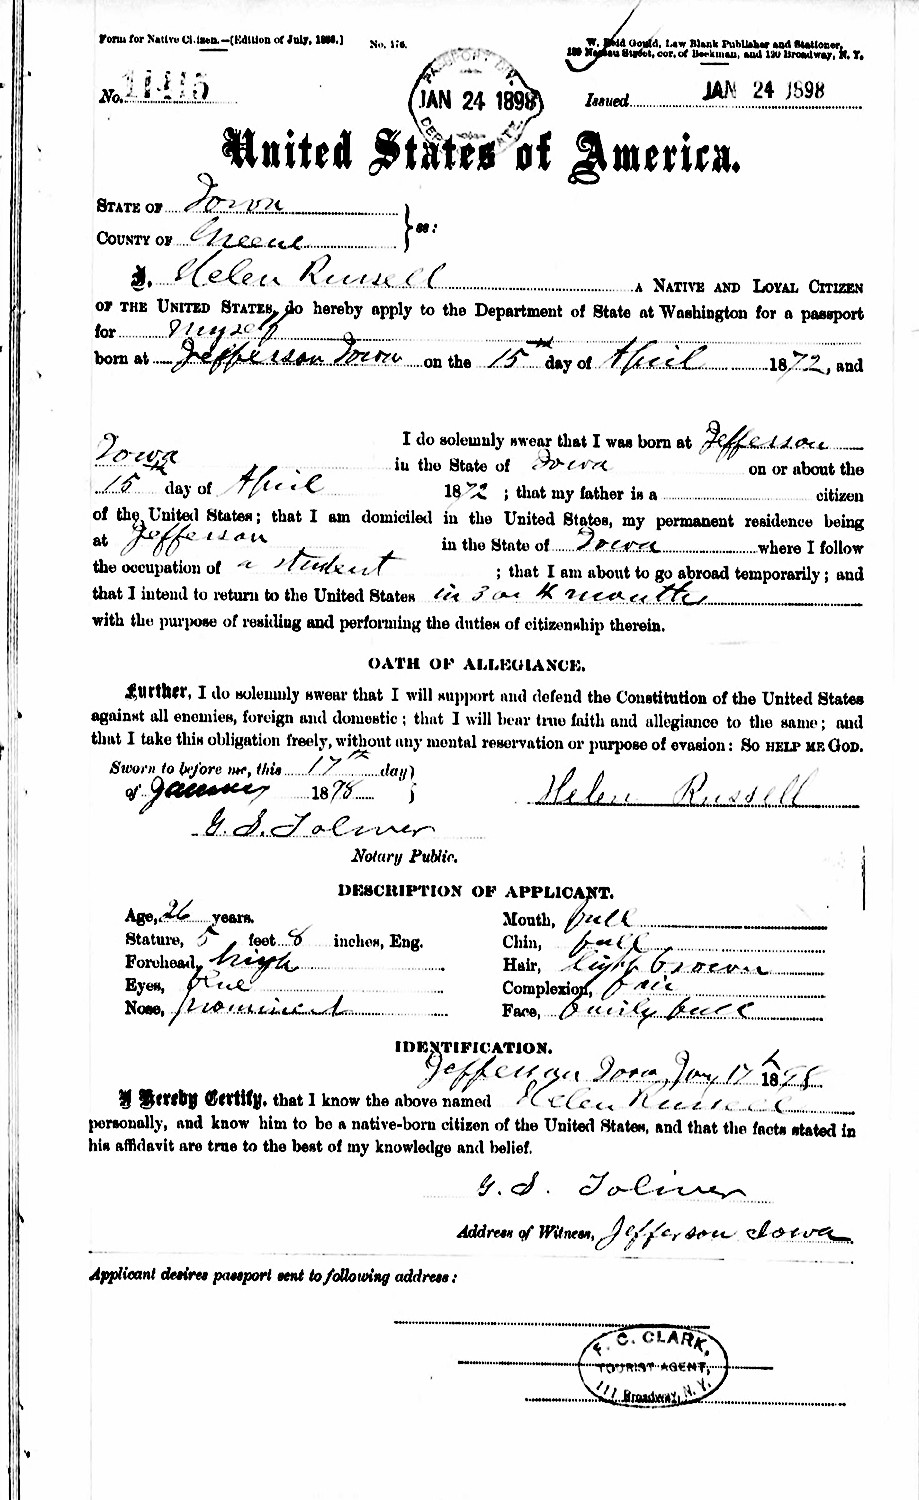 Form for Native Citizen.—[Edition of July, 1888.] No. 176.
W. Reid Gould, Law Blank Publisher and Stationer,
139 Nassau Street, cor. of Beekman, and 120 Broadway, N. Y.
No. 11415
PASSPORT DIV.
JAN 24 1898
Issued JAN 24 1898
United States of America.
STATE OF Iowa
COUNTY OF Greene } ss:
I, Helen Russell a NATIVE AND LOYAL CITIZEN
OF THE UNITED STATES, do hereby apply to the Department of State at Washington for a passport
for myself
born at Jefferson Iowa on the 15th day of April 1872, and
I do solemnly swear that I was born at Jefferson
Iowa in the State of Iowa on or about the
15th day of April 1872; that my father is a citizen
of the United States; that I am domiciled in the United States, my permanent residence being
at Jefferson in the State of Iowa where I follow
the occupation of a student; that I am about to go abroad temporarily; and
that I intend to return to the United States in 3 or 4 months
with the purpose of residing and performing the duties of citizenship therein.
OATH OF ALLEGIANCE.
Further, I do solemnly swear that I will support and defend the Constitution of the United States
against all enemies, foreign and domestic; that I will bear true faith and allegiance to the same; and
that I take this obligation freely, without any mental reservation or purpose of evasion: SO HELP ME GOD.
Sworn to before me, this 17th day
of January 1898
Helen Russell
G. S. Toliver
Notary Public.
DESCRIPTION OF APPLICANT.
Age, 26 years. Mouth, full
Stature, 5 feet 8 inches, Eng. Chin, full
Forehead, high Hair, light brown
Eyes, Blue Complexion, fair
Nose, prominent Face, full
IDENTIFICATION.
Jefferson Iowa, Jany 17th 1898
I Hereby Certify, that I know the above named Helen Russell
personally, and know him to be a native-born citizen of the United States, and that the facts stated in
his affidavit are true to the best of my knowledge and belief.
G. S. Toliver
Address of Witness, Jefferson Iowa
Applicant desires passport sent to following address:
F. C. CLARK,
TOURIST AGENT,
111 Broadway, N. Y.